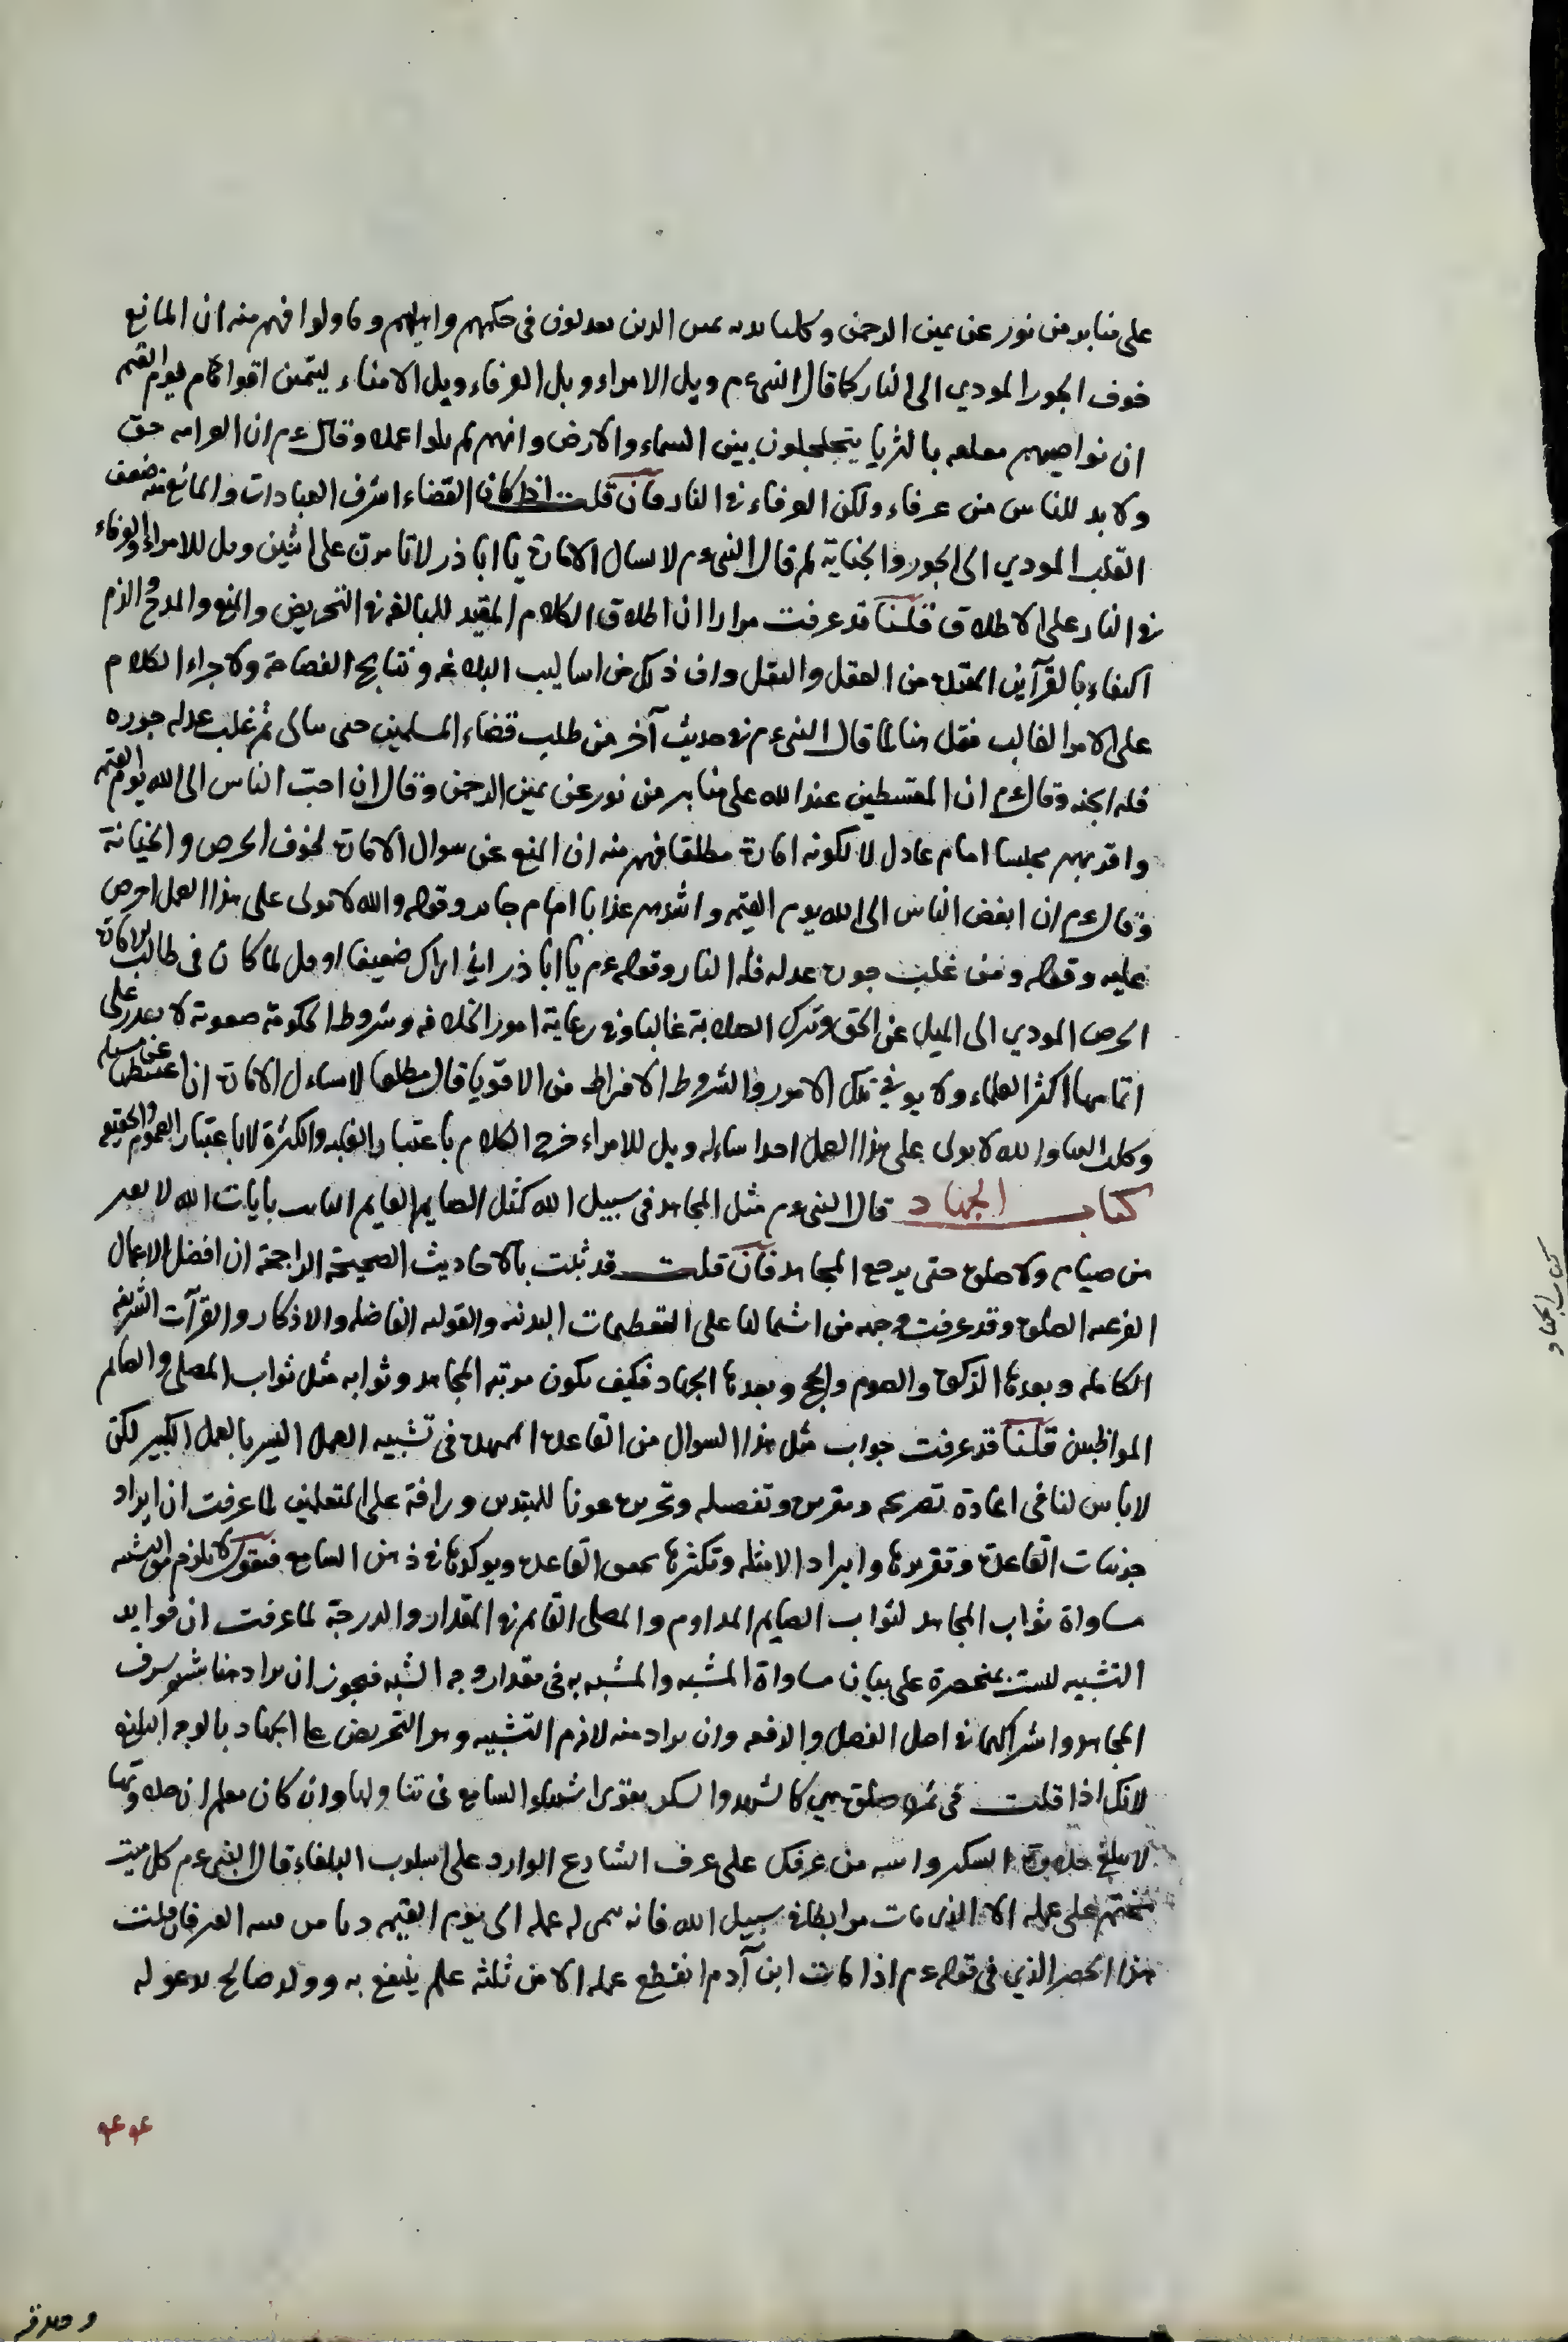 على منابر من نور عن يمين الرحمن وكلتا يديه يمين الذين يعدلون في حكمهم واهليهم وما ولوا فهم منه ان المانع
خوف الجور المودي الى النار كما قال النبى عم ويل الامراء ويل العرفاء ويل الامناء ليتمنين اقوام يوم القيمة
ان نواصيهم معلقه بالثريا يتجلجلون بين السماء والارض وانهم لم يلوا عملا وقال عم ان العرافه حق
ولا بد للناس من عرفاء ولكن العرفاء في النار فان قلت اذا كان القضاء اشرف العبادات والمانع منه ضعف
القلب المودي الى الجور والجناية لم قال النبى عم لا تسال الامارة يا ابا ذر لا تامرن على اثنين وويل للامراء والعرفاء
في النار على الاطلاق قلنا قد عرفت مرارا ان اطلاق الكلام المقيد للمبالغه في التحريض والمنع والمدح والذم
اكتفاء بالقرآين من العقل والنقل وان ذلك من اساليب البلاغه ونتايج الفصاحة ولاجراء الكلام
على الامر الغالب فقل هنا لما قال النبى عم في حديث آخر من طلب قضاء المسلمين حتى يناله ثم غلب عدله جوره
فله الجنه وقال عم ان المقسطين عند الله على منابر من نور عن يمين الرحمن وقال ان احب الناس الى الله يوم القيمة
واقربهم مجلسا امام عادل لا لكونه امارة مطلقا فهم منه ان المنع عن سوال الامارة لخوف الحرص والخيانة
وقال عم ان ابغض الناس الى الله يوم القيمه واشدهم عذابا امام جاير وقوله والله لا نولى على هذا العمل احرص
عليه وقوله ومن غلب جوره عدله فله النار وقوله عم يا ابا ذر اني اراك ضعيفا او قل لما كان في طالب الامارة
الحرص المودي الى الميل عن الحق وترك الصلابة غالبا وفي رعاية امور الخلافه وشروط الحكومة صعوبة لا يقدر على
اتمامها اكثر العلماء ولا يوفي تلك الامور والشروط الا فراط من الاقويا قال مطلقا لا تساءل الامارة ان اعطيتها عن مسئله
وكلت اليها والله لا نولى على هذا العمل احدا ساءله ويل للامراء خرج الكلام باعتبار الغلبه والكثرة لا باعتبار العموم والحقيقه
كتاب الجهاد قال النبى عم مثل المجاهد في سبيل الله كمثل الصايم القايم القانت بايات الله لا يفتر
من صيام ولا صلوة حتى يرجع المجاهد فان قلت قد ثبت بالاحاديث الصحيحة الراجحة ان افضل الاعمال
الفرعيه الصلوة وقد عرفت وجهه من اشتمالها على التعظيمات البدنيه والقوليه الفاضله والاذكار والقرآت الشريفه
الكامله وبعدها الزكوة والصوم والحج وبعدها الجهاد فكيف يكون مرتبه المجاهد وثوابه مثل ثواب المصلى والصايم
المواظبين قلنا قد عرفت جواب مثل هذا السوال من القاعدة الممهدة في تشبيه العمل اليسير بالعمل الكبير لكن
لا باس لنا في اعادة تصريحه وتقريره وتفصيله وتحريره عونا للمبتدين ورافة على المتعلمين لما عرفت ان ايراد
جزئيات القاعدة وتقريرها وايراد الامثله وتكثرها يحقق القاعدة ويوكدها في ذهن السامع فنقول لا يلزم من التشبيه
مساواة ثواب المجاهد لثواب الصايم المداوم والمصلى القايم في المقدار والدرجة لما عرفت ان فوايد
التشبيه ليست بمنحصرة على بيان مساواة المشبه والمشبه به في مقدار وجه الشبه فيجوز ان يراد هنا شرف
المجاهد واشراكهما في اصل الفضل والرفعه وان يراد منه لازم التشبيه وهو التحريض على الجهاد بالوجه البليغ
لانك اذا قلت في ثمرة حلوة هي كالشهد والسكر يقوى اشتهاء السامع في تناولها وان كان يعلم ان حلاوتها
لا يبلغ حلاوة السكر وانبه من عرفك على عرف الشارع الوارد على اسلوب البلغاء قال النبى عم كل ميت
يختم على عمله الا الذي مات مرابطا في سبيل الله فانه ينمى له عمله الى يوم القيمه ويامن فتنه القبر فان قلت
هذا الحصر الذي في قوله عم اذا مات ابن آدم انقطع عمله الا من ثلثه علم ينتفع به وولد صالح يدعو له
كتاب الجهاد
وصدقة